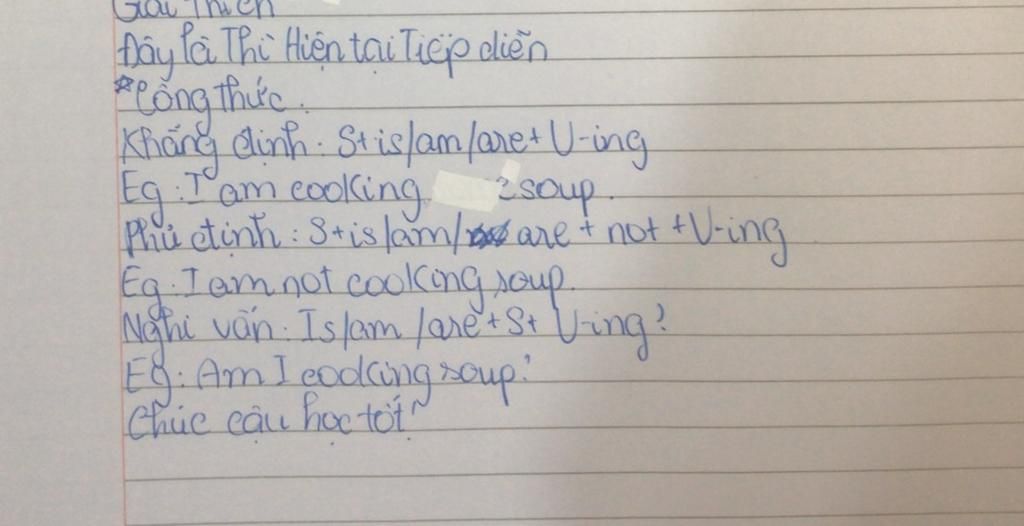 Giải Thích
Đây là Thì Hiện tại Tiếp diễn
*Công thức.
Khẳng định: S+is/am/are+V-ing
Eg: I am cooking soup.
Phủ định: S+is/am/are+not+V-ing
Eg: I am not cooking soup.
Nghi vấn: Is/am/are+S+V-ing?
Eg: Am I cooking soup?
Chúc cậu học tốt~